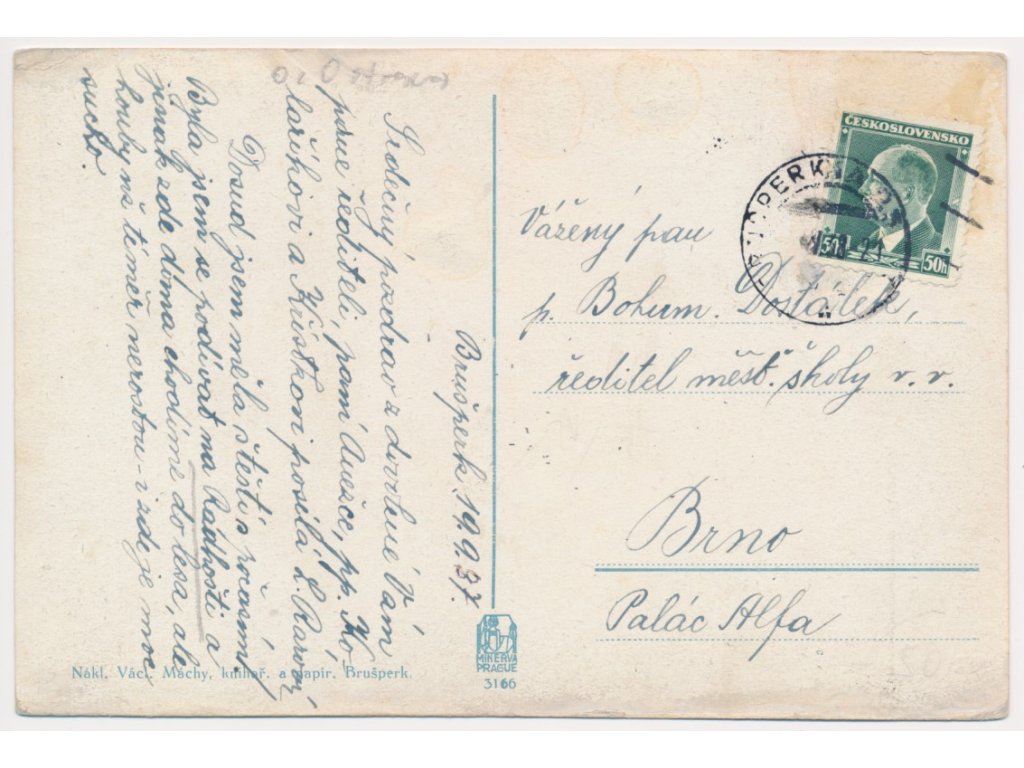 o. Ostrava
Srdečný pozdrav z dovolené Vám
pane řediteli, paní Anežce, pp. Ko-
laříkovi a Křístkovi posílá L. Rarová,
Dosud jsem měla štěstí s počasím.
Byla jsem se podívat na Radhošti a
jinak zde doma chodíme do lesa, ale
houby nš téměř nerostou - i zde je moc
sucho.
Brušperk 19.9.37.
Nákl. Václ. Máchy, knihař. a papír. Brušperk.
MINERVA
PRAGUE
3166
ČESKOSLOVENSKO
50h
50h
Vážený pan
p. Bohum. Dostálek,
ředitel měšť. školy v. v.
Brno
Palác Alfa